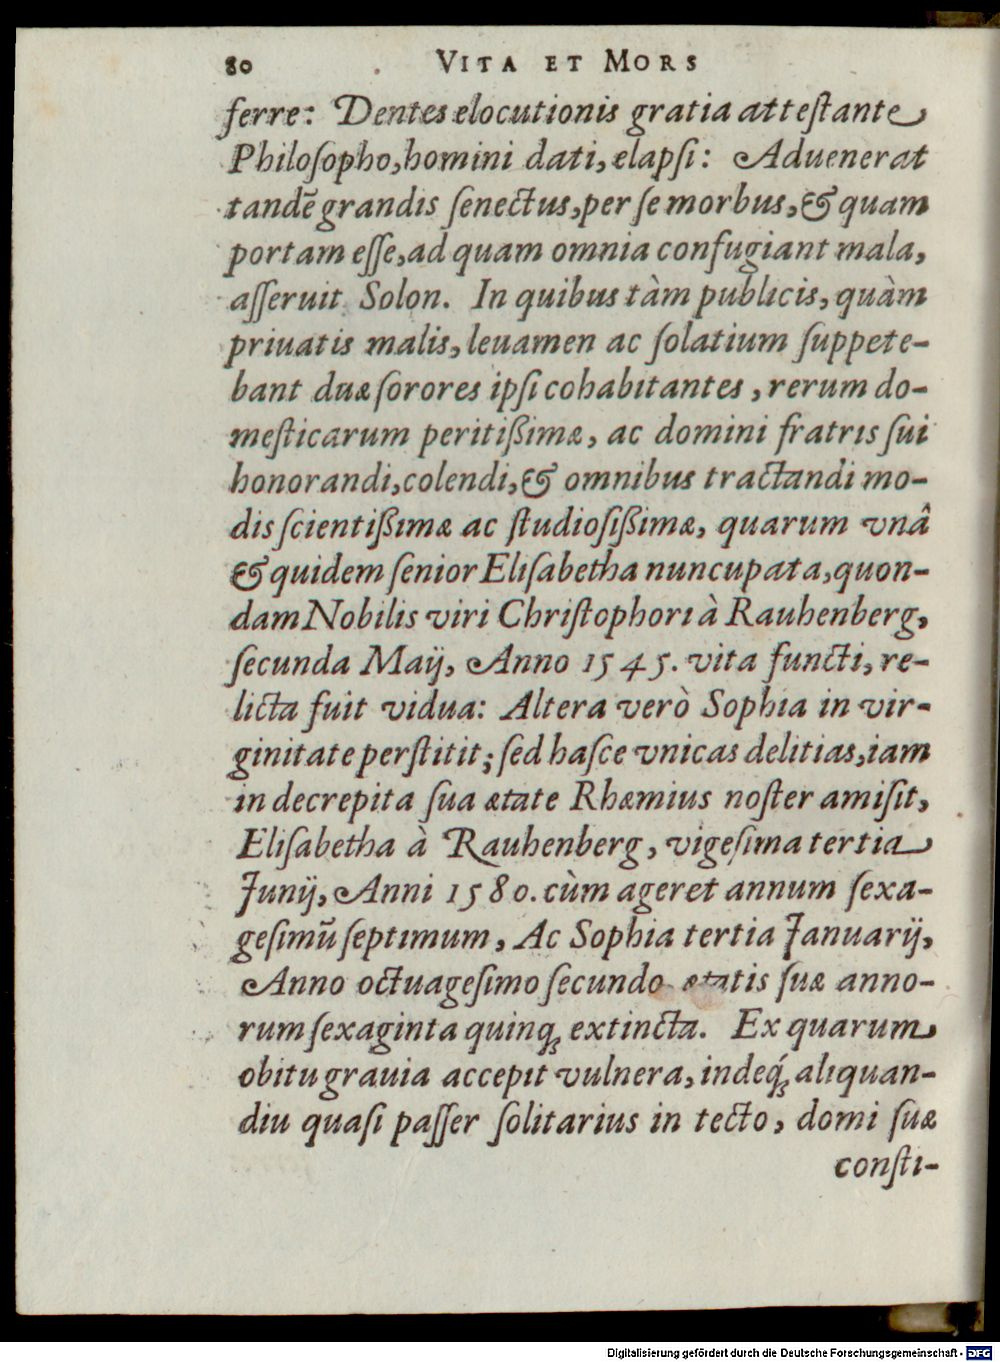 80 VITA ET MORS
ferre: Dentes elocutionis gratia attestante
Philosopho, homini dati, elapsi: Aduenerat
tandē grandis senectus, per se morbus, & quam
portam esse, ad quam omnia confugiant mala,
asseruit Solon. In quibus tàm publicis, quàm
priuatis malis, leuamen ac solatium suppete-
bant duæ sorores ipsi cohabitantes, rerum do-
mesticarum peritißimæ, ac domini fratris sui
honorandi, colendi, & omnibus tractandi mo-
dis scientißimæ ac studiosißimæ, quarum vnâ
& quidem senior Elisabetha nuncupata, quon-
dam Nobilis viri Christophori à Rauhenberg,
secunda Maij, Anno 1545. vita functi, re-
licta fuit vidua: Altera verò Sophia in vir-
ginitate perstitit; sed hasce vnicas delitias, iam
in decrepita sua ætate Rhæmius noster amisit,
Elisabetha à Rauhenberg, vigesima tertia
Junij, Anni 1580. cùm ageret annum sexa-
gesimū septimum, Ac Sophia tertia Januarij,
Anno octuagesimo secundo ætatis suæ anno-
rum sexaginta quinq; extincta. Ex quarum
obitu grauia accepit vulnera, indeq́; aliquan-
diu quasi passer solitarius in tecto, domi suæ
consti-
Digitalisierung gefördert durch die Deutsche Forschungsgemeinschaft - DFG